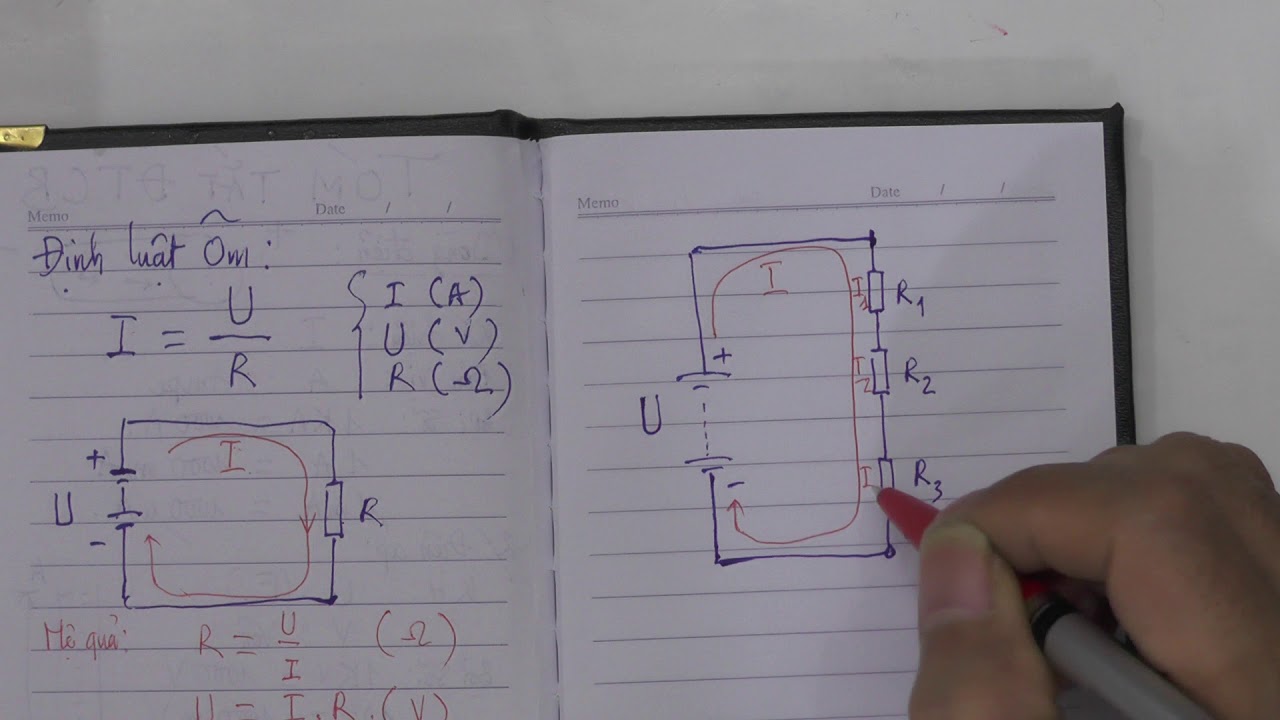 Memo Date / /
Định luật Ôm:
I = U / R
I (A)
U (V)
R (Ω)
+
I
U
R
-
Hệ quả: R = U / I (Ω)
U = I . R . (V)
Memo Date / /
I
I1 R1
+
I2 R2
U
I R3
-